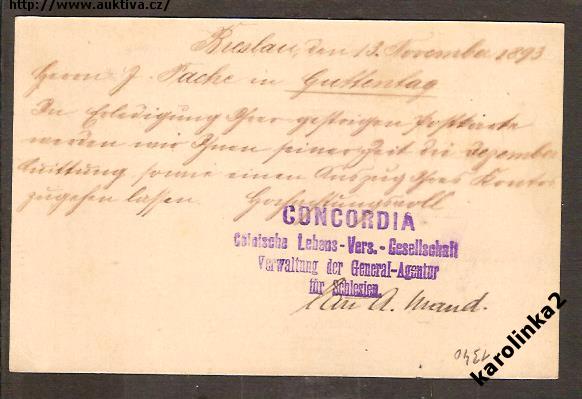 http://www.auktiva.cz/
Breslau, den 13. November 1893
Herrn J. Fache in Guttentag
In Erledigung Ihrer gestrigen Postkarte
werden wir Ihnen seiner Zeit die Dezember
Quittung sowie einen Auszug Ihres Kontos
zugehen lassen. Hochachtungsvoll
CONCORDIA
Cölnische Lebens-Vers.-Gesellschaft
Verwaltung der General-Agentur
für Schlesien.
A. Mand.
1340
karolinka2